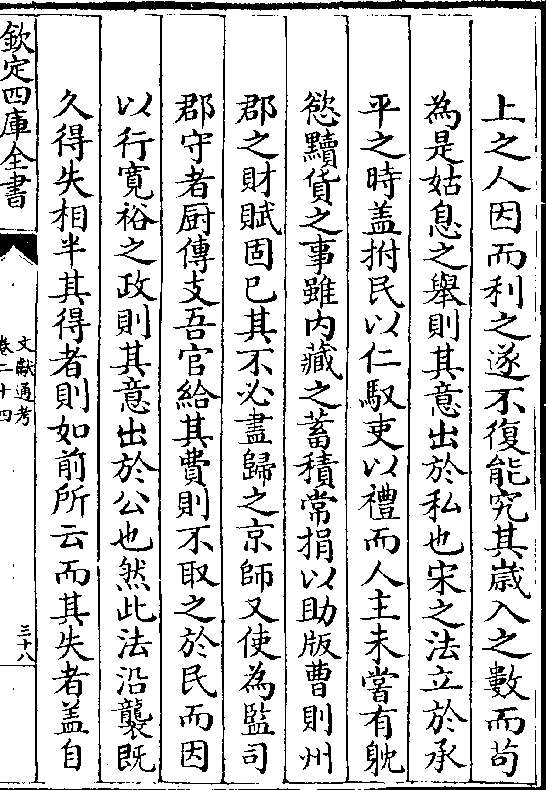 上之人因而利之遂不復能究其嵗入之數而苟
為是姑息之舉則其意出於私也宋之法立於承
平之時盖拊民以仁馭吏以禮而人主未嘗有躭
慾黷貨之事雖内藏之蓄積常捐以助版曹則州
郡之財賦固已其不必盡歸之京師又使為監司
郡守者厨傳支吾官給其費則不取之於民而因
以行寛裕之政則其意出於公也然此法沿襲既
久得失相半其得者則如前所云而其失者盖自
欽定四庫全書
文獻通考
卷二十四
三十八